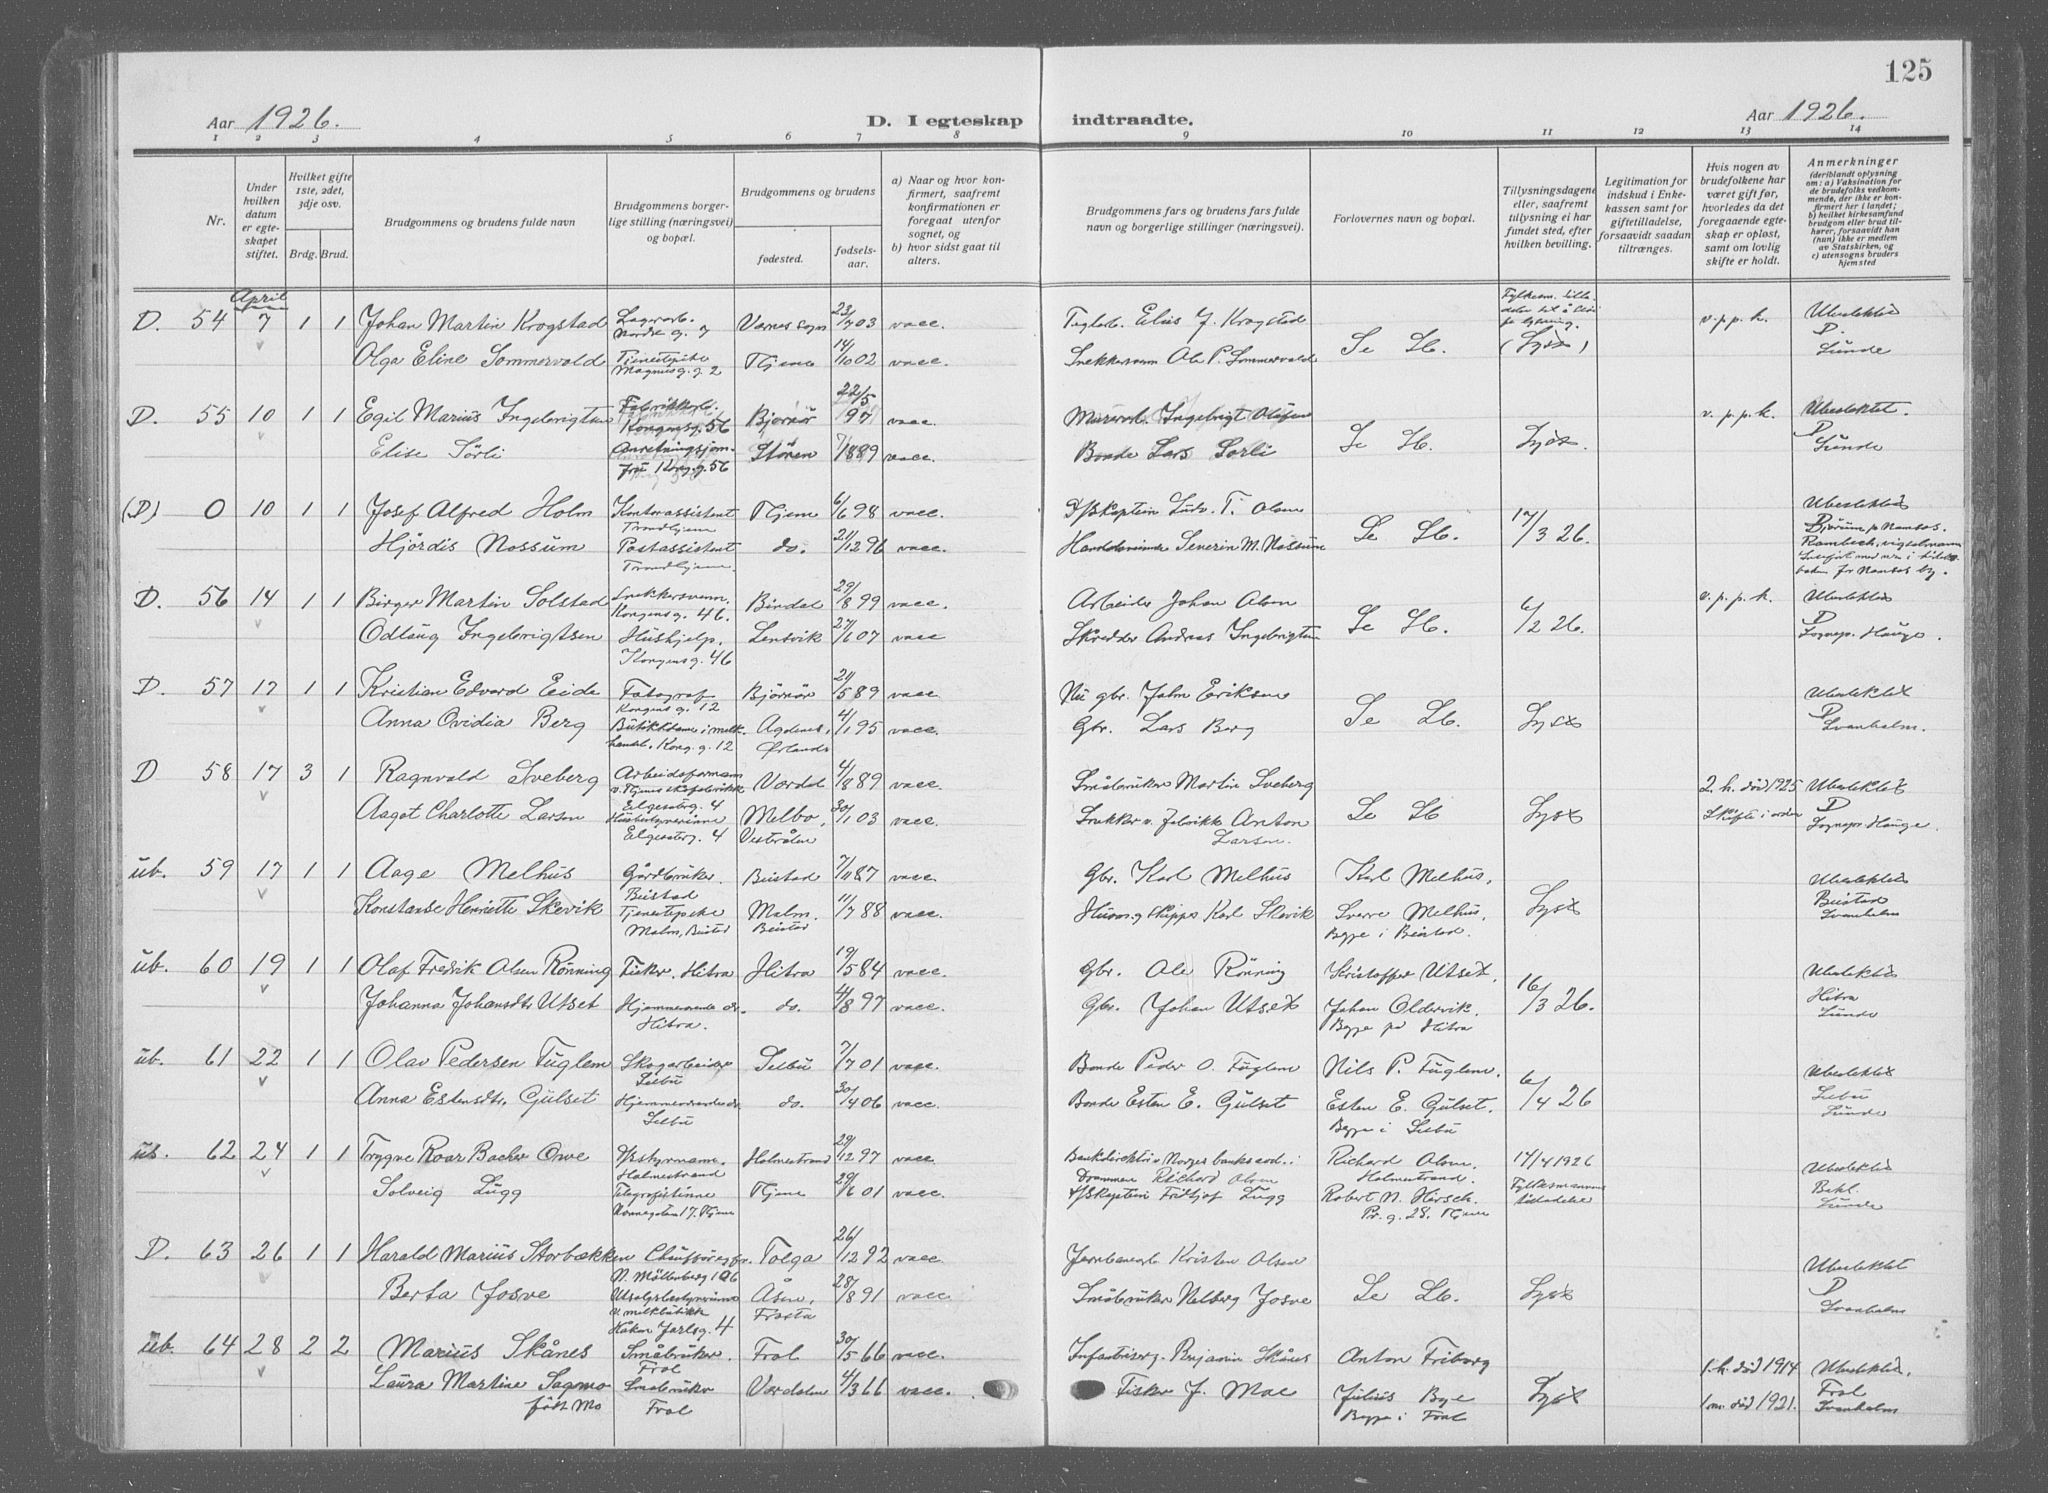 125
Aar 1926.
D. I egteskap indtraadte.
Aar 1926.
1 2 3 4 5 6 7 8 9 10 11 12 13 14
Nr.
Under hvilken datum er egteskapet stiftet.
Hvilket gifte 1ste, 2det, 3dje osv.
Brdg. Brud.
Brudgommens og brudens fulde navn
Brudgommens borgerlige stilling (næringsvei) og bopæl.
Brudgommens og brudens
fødested.
fødselsaar.
a) Naar og hvor konfirmert, saafremt konfirmationen er foregaat utenfor sognet, og
b) hvor sidst gaat til alters.
Brudgommens fars og brudens fars fulde navn og borgerlige stillinger (næringsvei).
Forlovernes navn og bopæl.
Tillysningsdagene eller, saafremt tillysning ei har fundet sted, efter hvilken bevilling.
Legitimation for indskud i Enkekassen samt for giftetilladelse, forsaavidt saadan tiltrænges.
Hvis nogen av brudefolkene har været gift før, hvorledes da det foregaaende egteskap er opløst, samt om lovlig skifte er holdt.
Anmerkninger
(deriblandt oplysning om: a) Vaksination for de brudefolks vedkommende, der ikke er konfirmert her i landet; b) hvilket kirkesamfund brudgom eller brud tilhører, forsaavidt han (hun) ikke er medlem av Statskirken, og c) utensogns bruders hjemsted
April
D. 54 7 1 1 Johan Martin Krogstad Lagerarb. Nordre g. 7 Værnes sogn 23/7 03 vacc. Teglarb. Elias J. Krogstad Se Lb. (Lyst) v. p. p. k. Ubeslektet D. Sunde
Olga Eline Sommervold Tjenestepike Magnusg. g. 2 Thjem 14/10 02 vacc. Snekkersvenn Ole P. Sommervold
D. 55 10 1 1 Egil Marius Ingebrigtsen Fabrikkarb. Kongensg. 56 Bjørnør 22/5 97 vacc. Murerarb. Ingebrigt Olufsen Se Lb. Lyst. v. p. p. k. Ubeslektet. D Sunde
Elise Sörli Anretningsjomfru Kong. g. 56 Støren 7/1 889 vacc. Bonde Lars Sørli
(D) 0 10 1 1 Josef Alfred Holm Kontorassistent Trondhjem Thjem 6/6 98 vacc. D/Skaptein Ludv. T. Olsen Se Lb. 17/3 26. Ubeslektet D
Hjördis Nossum Postassistent Trondhjem do. 21/12 96 vacc. Handelsmand Severin M. Nossum
D. 56 14 1 1 Birger Martin Solstad Snekkersvenn. Kongensg. 46. Bindal 29/8 99 vacc. Arbeider Johan Olsen Se Lb. 6/2 26. v. p. p. k. Ubeslektet D Sognepr. Hauge.
Odlaug Ingebrigtsen Hushjelp, Kongensg. 46 Lensvik 27/6 07 vacc Skredder Andreas Ingebrigtsen
D. 57 17 1 1 Kristian Edvard Eide Fotograf Kongens g. 12 Bjørnør 21/5 89 vacc. Nu gbr. John Eriksen Se Lb. Lyst Ubeslektet D Svanholm.
Anna Ovidia Berg Butikkdame i melkhandel, Kong. g. 12 Agdenes, Ørlandet 4/1 95 vacc. Gbr. Lars Berg
D 58 17 3 1 Ragnvald Sveberg Arbeidsformann Elgesæterg. 4 Verdal 4/8 89 vacc. Småbruker Martin Sveberg Se Lb Lyst 2. h. död 1925 Skifte i orden Ubeslektet D Sognepr. Hauge.
Aagot Charlotte Larsen Husbestyrerinne Elgesæterg. 4 Melbo, Vesterålen 30/1 03 vacc. Snekker v. fabrikk Anton Larsen.
ub. 59 17 1 1 Aage Melhus Gårdbruker. Beistad Beistad 7/11 87 vacc. Gbr. Karl Melhus Karl Melhus, Lyst Ubeslektet Beistad Svanholm
Konstanse Henriette Skevik Tjenestepike Malm, Beistad Malm. Beistad 11/7 88 vacc. Husm. g skipper Karl Skevik Sverre Melhus, Begge i Beistad.
ub. 60 19 1 1 Olaf Fredrik Olsen Rönning Fisker, Hitra Hitra 19/5 84 vacc. Gbr. Ole Rönning Kristoffer Utset, 16/3 26. Ubeslektet Hitra Sunde
Johanna Johansdtr Utset Hjemmeværende dr. Hitra. do. 4/8 97 vacc. Gbr. Johan Utset Johan Oldervik. Begge på Hitra
ub. 61 22 1 1 Olav Pedersen Fuglem Skogarbeider Selbu Selbu 7/7 01 vacc. Bonde Peder O. Fuglem Nils P. Fuglem. 6/4 26 Ubeslektet Selbu Sunde
Anna Estensdtr. Gulset Hjemmeværende dr. Selbu do. 30/4 06 vacc. Bonde Esten E. Gulset Esten E. Gulset. Begge i Selbu
ub. 62 24 1 1 Trygve Roar Bacher Owe Holmestrand Holmestrand 29/12 97 vacc. Bankdirektör v. Norges banks avd. i Drammen Richard Olsen Richard Olsen. Holmestrand. 17/4 1926 Fylkesmannens tilladelse Ubeslektet Bakl. Sunde
Solveig Lugg Telegrafistinne Thjem 29/6 01 vacc. D/Skaptein Fritjof Lugg Robert N. Hirsch. Pr. g. 28. Thjem
D. 63 26 1 1 Harald Marius Storbækken N. Möllenberg 106 Tolga 26/12 92 vacc. Jernbanearb. Kristen Olsen Se Lb. Lyst Ubeslektet D Svanholm
Berta Josve Utsalgsbestyrerinne v. melkbutikk Håkon Jarlsg. 4 Åsen, Frosta 28/8 91 vacc. Småbruker Nelberg Josve
ub. 64 28 2 2 Marius Skånes Småbruker. Frol Frol 30/5 66 vacc. Benjamin Skånes Anton Friborg Lyst 1. h. död 1914 Ubeslektet. Frol Svanholm
Laura Martine Sagmo født Mo Småbruker Frol Værdalen 4/3 66 vacc. Fisker J. Moe Julius Bye Begge i Frol 1. m. död 1921.